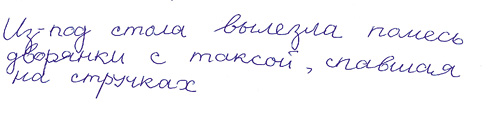 Из-под стола вылезла помесь
дворянки с таксой, спавшая
на стручках